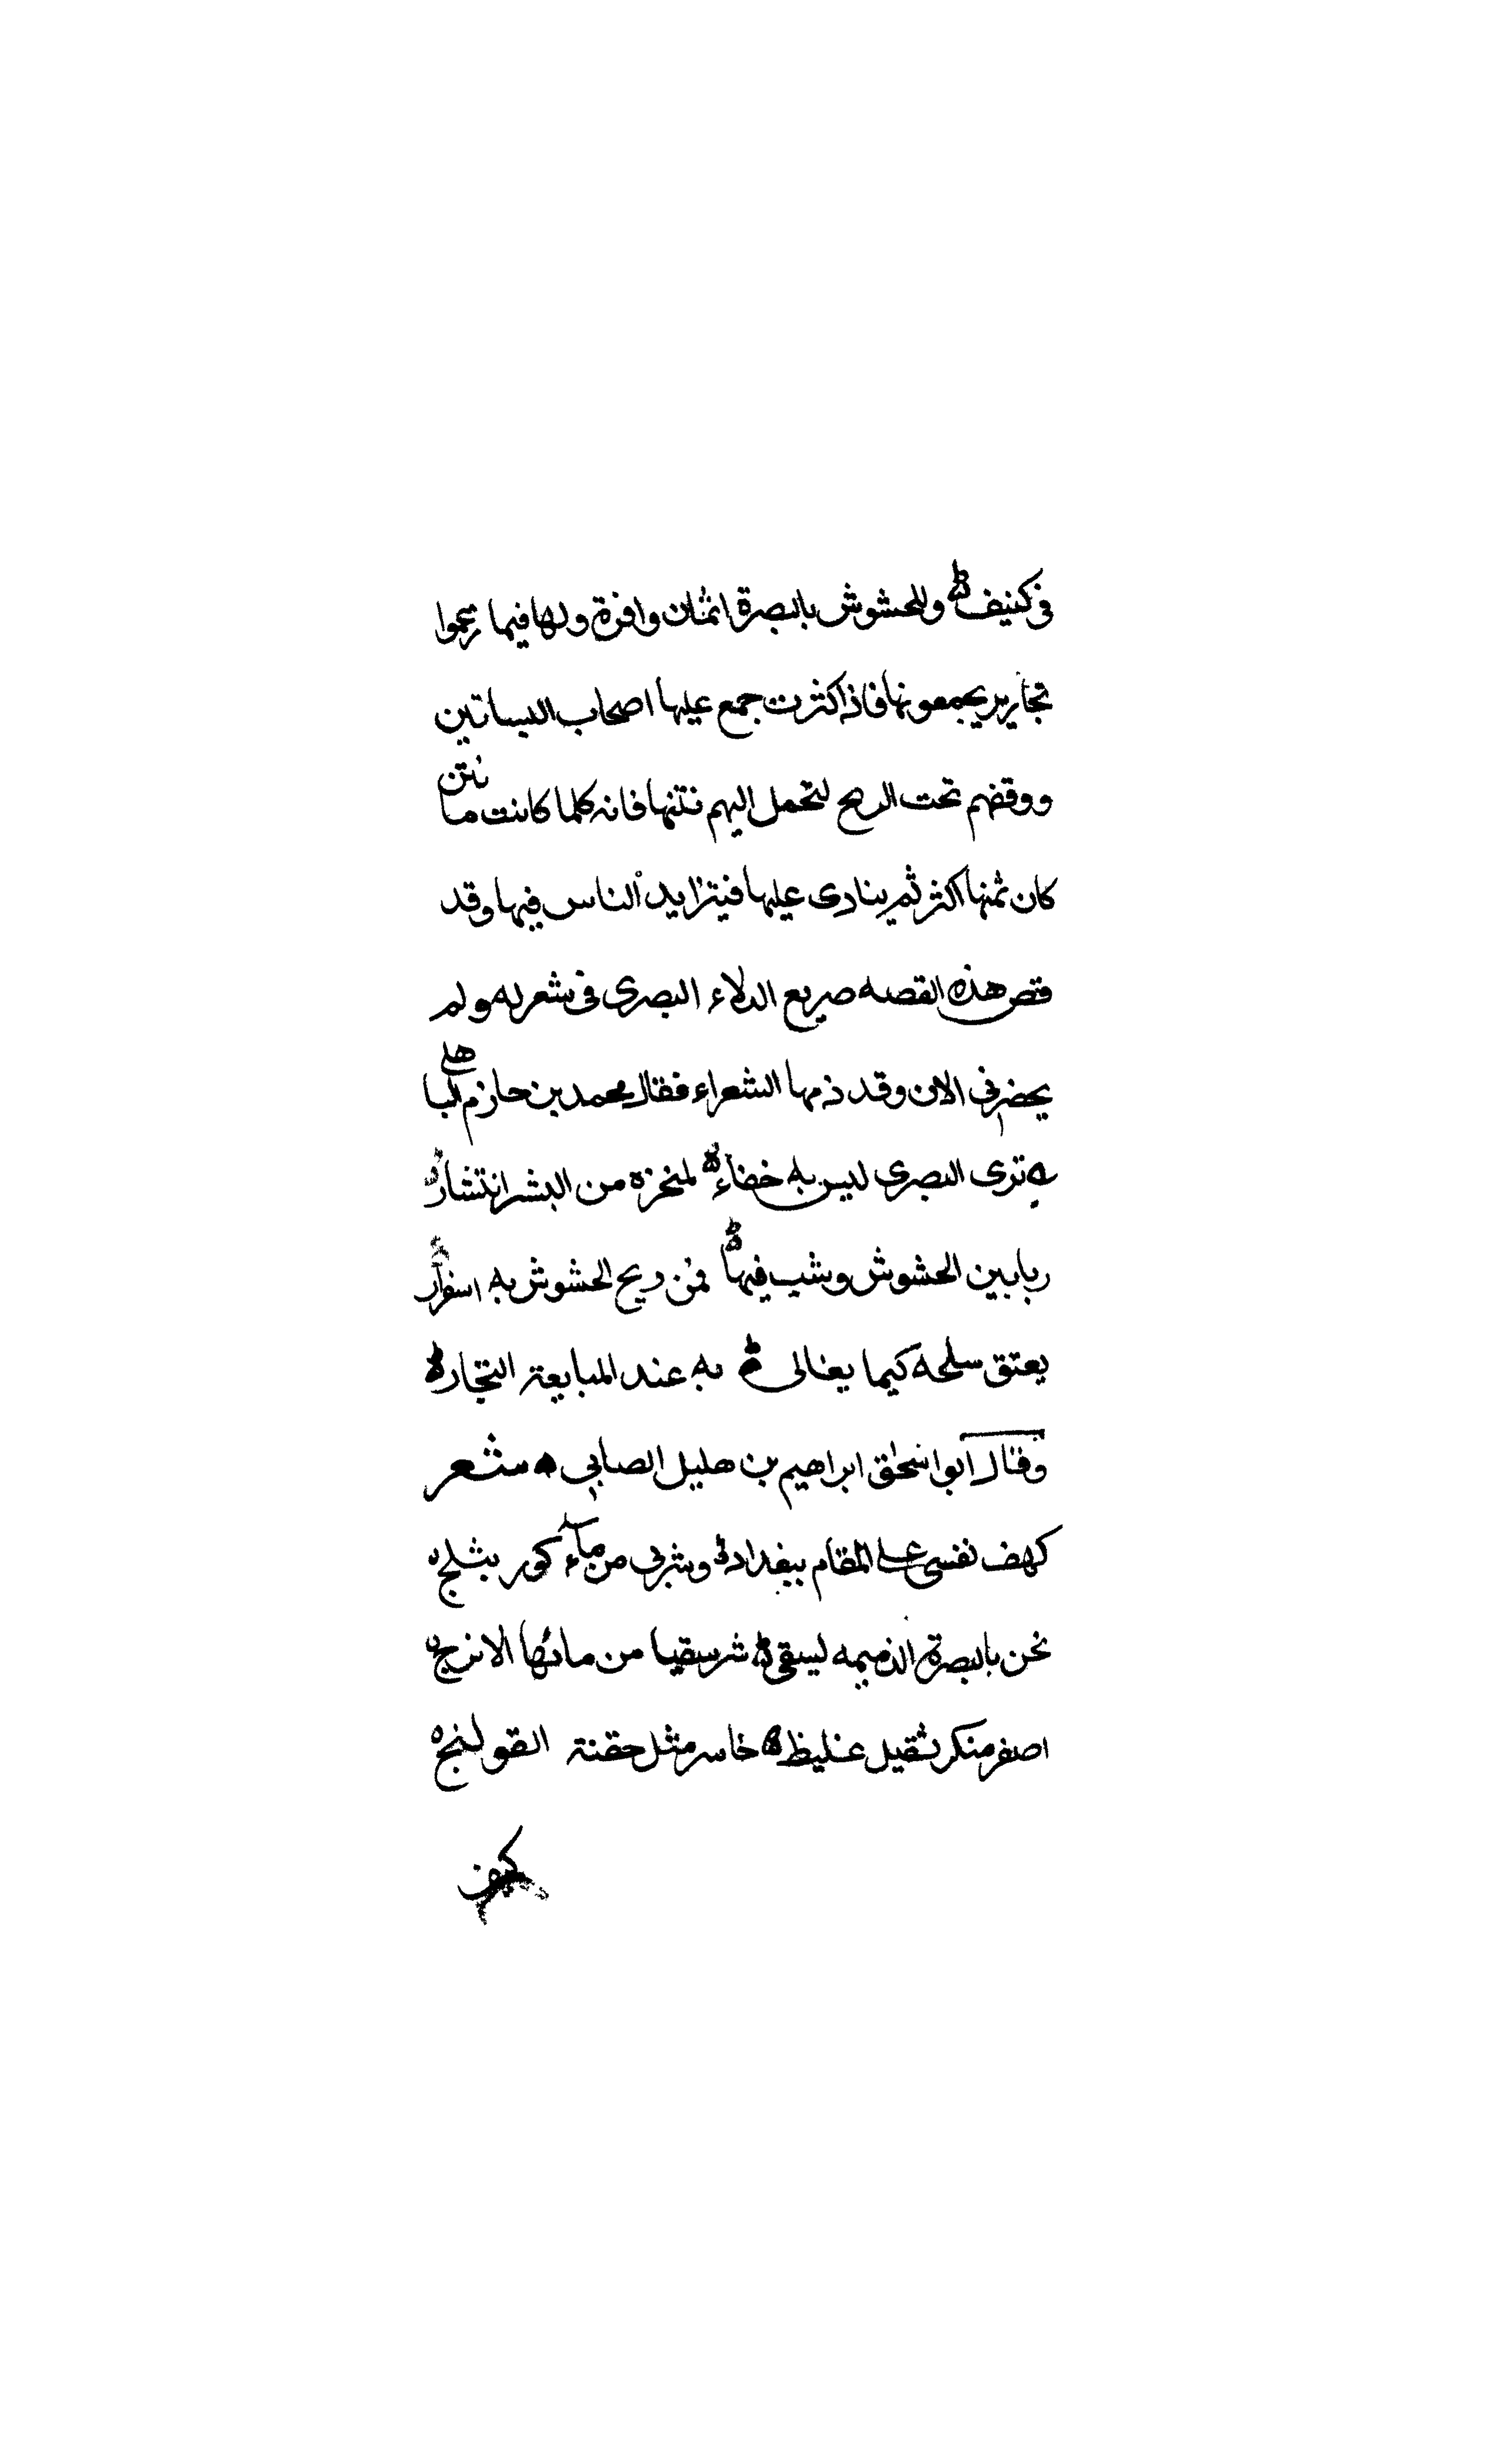 في كنيف وللحشوش بالبصرة اثمان وافرة ولها فيما زعموا
تجار يجمعونها فاذا كثرت جمع عليها اصحاب البساتين
ووقفهم تحت الريح لتحمل اليهم نتنها فانه كلما كانت ما نتن
كان ثمنها اكثر ثم ينادى عليها فيتزايد الناس فيها وقد
قص هذه القصه صريع الدلاء البصرى فى شعر له ولم
يحضرني الان وقد ذمها الشعراء فقال محمد بن حازم الباهلي
ترى البصرى ليس به خفاء لمنخره من البشر انتشار
ربا بين الحشوش وشب فيها فمن ريح الحشوش به اسفرار
يعتق سلحه كيما يغالى به عند المبايعة التجار
وقال ابو اسحق ابراهيم بن هليل الصابي شعر
لهف نفسى على المقام ببغداد وشربى من ماء كور بثلج
نحن بالبصرة الذميمه ليسقى شر سقيا من مائها الاترج
اصفر منكر ثقيل غليظ خاسر مثل حقنة القولنج
كيف